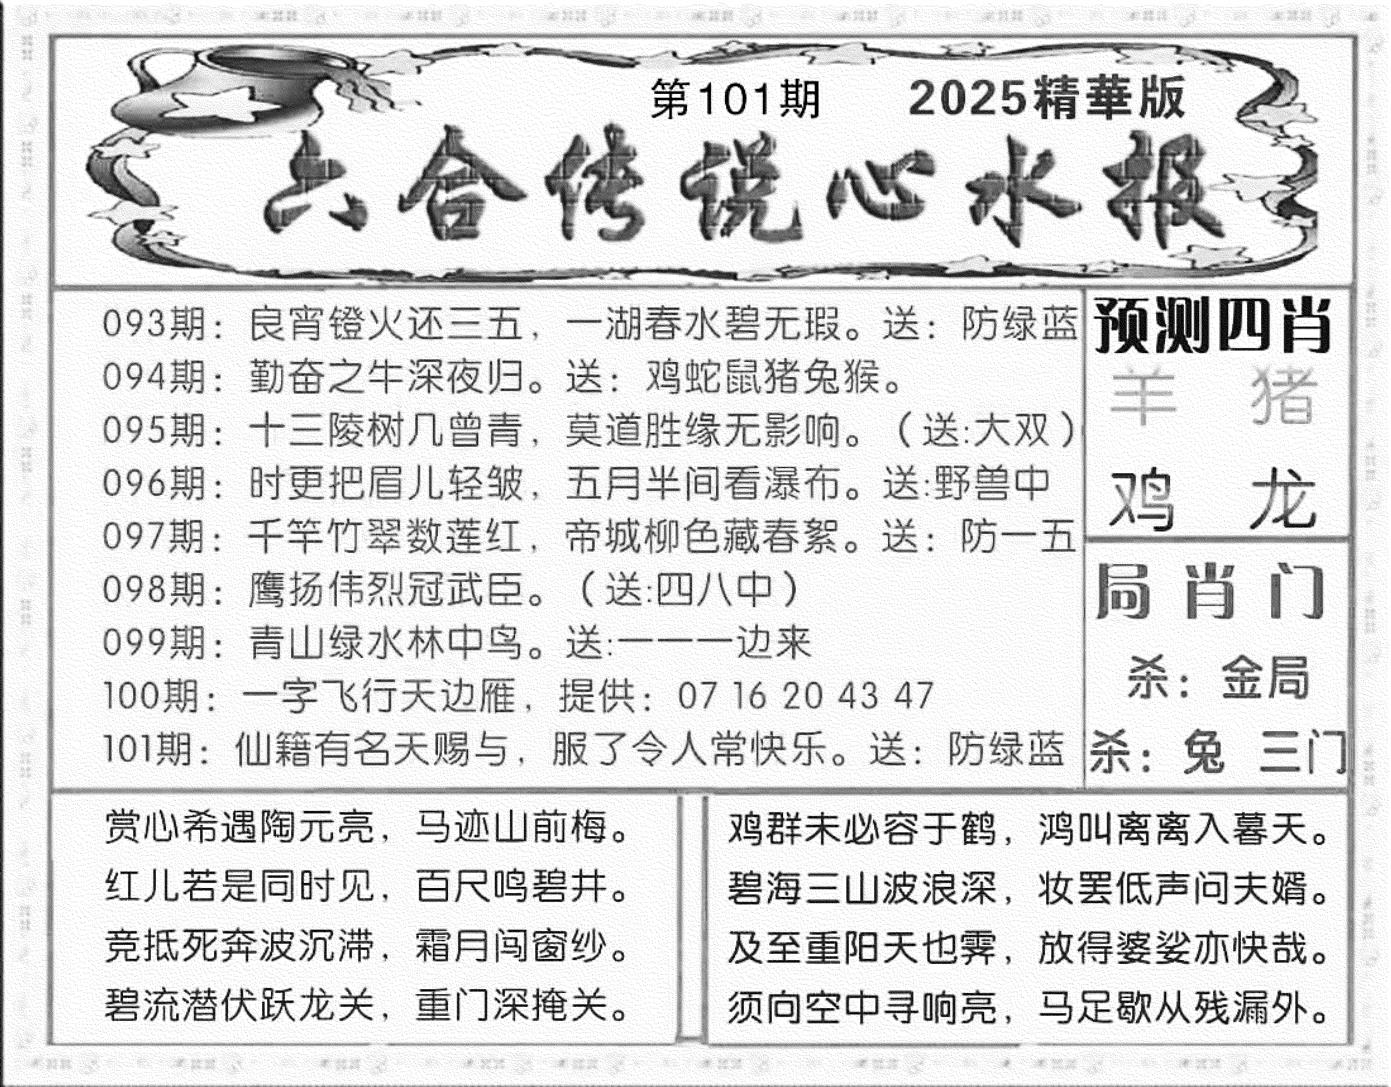 第101期 2025精華版
六合传说心水报
093期：良宵镫火还三五，一湖春水碧无瑕。送：防绿蓝
094期：勤奋之牛深夜归。送：鸡蛇鼠猪兔猴。
095期：十三陵树几曾青，莫道胜缘无影响。（送:大双）
096期：时更把眉儿轻皱，五月半间看瀑布。送:野兽中
097期：千竿竹翠数莲红，帝城柳色藏春絮。送：防一五
098期：鹰扬伟烈冠武臣。（送:四八中）
099期：青山绿水林中鸟。送:一一一边来
100期：一字飞行天边雁，提供：07 16 20 43 47
101期：仙籍有名天赐与，服了令人常快乐。送：防绿蓝
预测四肖
羊 猪
鸡 龙
局肖门
杀：金局
杀：兔 三门
赏心希遇陶元亮，马迹山前梅。
红儿若是同时见，百尺鸣碧井。
竞抵死奔波沉滞，霜月闯窗纱。
碧流潜伏跃龙关，重门深掩关。
鸡群未必容于鹤，鸿叫离离入暮天。
碧海三山波浪深，妆罢低声问夫婿。
及至重阳天也霁，放得婆娑亦快哉。
须向空中寻响亮，马足歇从残漏外。